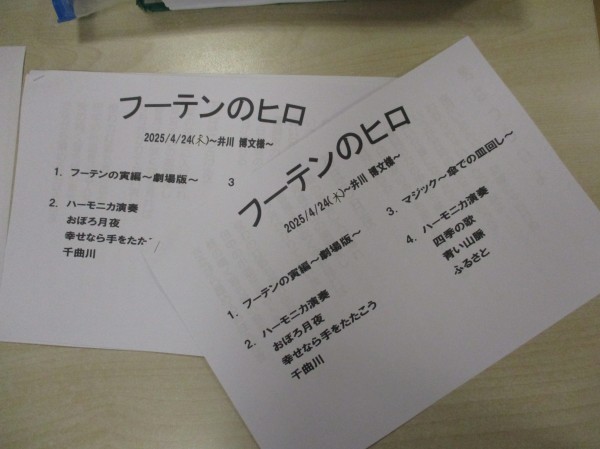 フーテンのヒロ
2025/4/24(木)～井川 博文様～
1. フーテンの寅編～劇場版～
3
2. ハーモニカ演奏
おぼろ月夜
幸せなら手をたた
千曲川
フーテンのヒロ
2025/4/24(木)～井川 博文様～
1. フーテンの寅編～劇場版～
2. ハーモニカ演奏
おぼろ月夜
幸せなら手をたたこう
千曲川
3. マジック～傘での皿回し～
4. ハーモニカ演奏
四季の歌
青い山脈
ふるさと